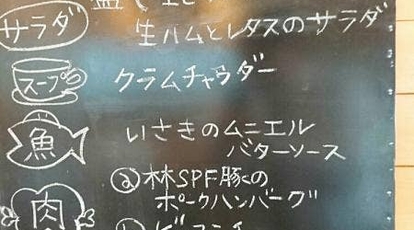 サラダ
生ハムとレタスのサラダ
スープ
クラムチャウダー
魚
いさきのムニエル
バターソース
ⓐ林SPF豚の
ポークハンバーグ
肉